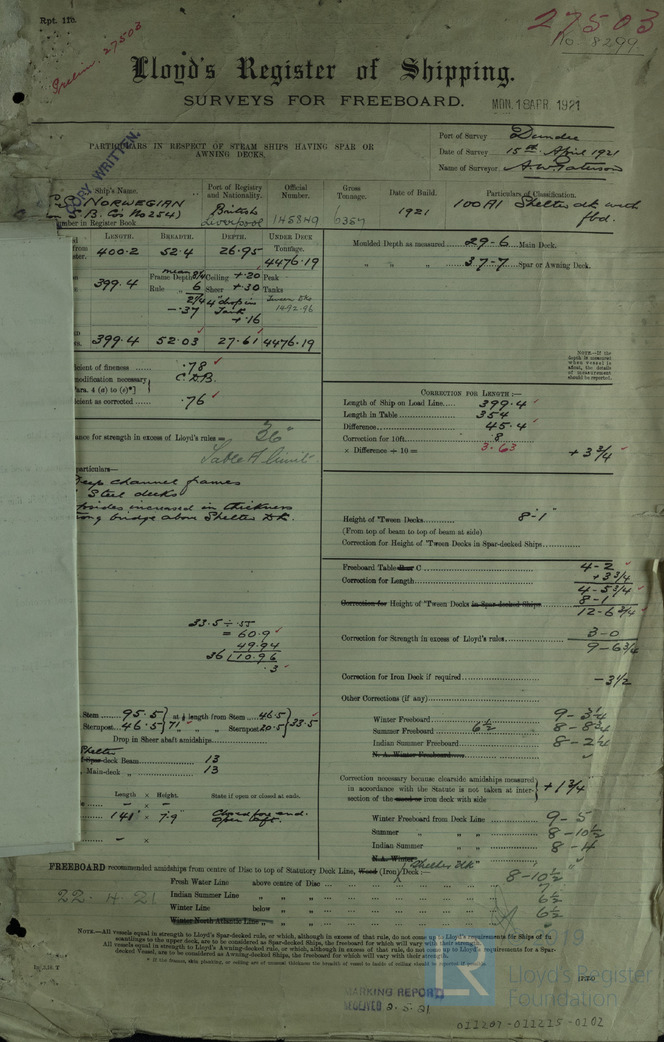 Rpt. 11b.
Prelim. 27503
27503
No 8299
Lloyd's Register of Shipping.
SURVEYS FOR FREEBOARD.
MON. 18 APR. 1921
COPY WRITTEN.
PARTICULARS IN RESPECT OF STEAM SHIPS HAVING SPAR OR AWNING DECKS.
Port of Survey Dundee
Date of Survey 15th April 1921
Name of Surveyor A.W. Paterson
Ship's Name. Port of Registry and Nationality. Official Number. Gross Tonnage. Date of Build. Particulars of Classification.
NORWEGIAN British Liverpool 145849 6357 1921 100A1 Shelter dk with fbd.
S. B. Co's No 254)
Number in Register Book
LENGTH. BREADTH. DEPTH. UNDER DECK TONNAGE.
400.2 52.4 26.95 4476.19
399.4 Frame Depth mean 2/4 Ceiling + .20 Peak
Rule 6 Sheer + .30 Tanks
2/4 4" drop in Tween Dks
- .37 Tank 1492.96
+ .16
399.4 52.03 27.61 4476.19
Moulded Depth as measured 29-6 Main Deck.
" " " 37-7 Spar or Awning Deck.
NOTE.—If the depth is measured when vessel is afloat, the details of measurement should be reported.
icient of fineness .78
modification necessary C.D.B.
Para. 4 (a) to (e)*]
icient as corrected .76
CORRECTION FOR LENGTH :—
Length of Ship on Load Line 399.4
Length in Table 354
Difference 45.4
Correction for 10ft. .8
× Difference ÷ 10 = 3.63 + 3 3/4
ance for strength in excess of Lloyd's rules = 36"
Table A limit.
particulars—
Deep channel frames
Steel decks
increased in thickness
bridge above Shelter Dk.
Height of 'Tween Decks 8-1"
(From top of beam to top of beam at side)
Correction for Height of 'Tween Decks in Spar-decked Ships
Freeboard Table C 4-2
Correction for Length + 3 3/4
4-5 3/4
Correction for Height of 'Tween Decks in Spar-decked Ships 8-1
12-6 3/4
33.5 ÷ .55
= 60.9
49.94
36 10.96
.3
Correction for Strength in excess of Lloyd's rules 3-0
9-6 3/4
Correction for Iron Deck if required - 3 1/2
Other Corrections (if any)
Stem 95.5 at 1/8 length from Stem 46.5
Sternpost 46.5 71 " " Sternpost 20.5 33.5
Drop in Sheer abaft amidships
Shelter
Spar-deck Beam 13
Main-deck " 13
Winter Freeboard 9-3 1/4
Summer Freeboard 6 1/2 8-8 3/4
Indian Summer Freeboard 8-2 1/4
N. A. Winter Freeboard
Length × Height. State if open or closed at ends.
- × -
141' × 7.9" Closed for end. Open aft.
- × -
Correction necessary because clearside amidships measured in accordance with the Statute is not taken at intersection of the wood or iron deck with side + 1 3/4"
Winter Freeboard from Deck Line 9-5
Summer " " " 8-10 1/2
Indian Summer " " 8-4
N.A. Winter
FREEBOARD recommended amidships from centre of Disc to top of Statutory Deck Line, Wood (Iron) Deck :— "Shelter Dk" 8-10 1/2
Fresh Water Line above centre of Disc
22.4.21 Indian Summer Line " " 6 1/2
Winter Line below " 6 1/2
Winter North Atlantic Line " "
NOTE.—All vessels equal in strength to Lloyd's Spar-decked rule, or which, although in excess of that rule, do not come up to Lloyd's requirements for Ships of full scantlings to the upper deck, are to be considered as Spar-decked Ships, the freeboard for which will vary with their strength.
All vessels equal in strength to Lloyd's Awning-decked rule, or which, although in excess of that rule, do not come up to Lloyd's requirements for a Spar-decked Vessel, are to be considered as Awning-decked Ships, the freeboard for which will vary with their strength.
MARKING REPORT
RECEIVED 2.5.21
2019
Lloyd's Register
Foundation
011207-011215-0102